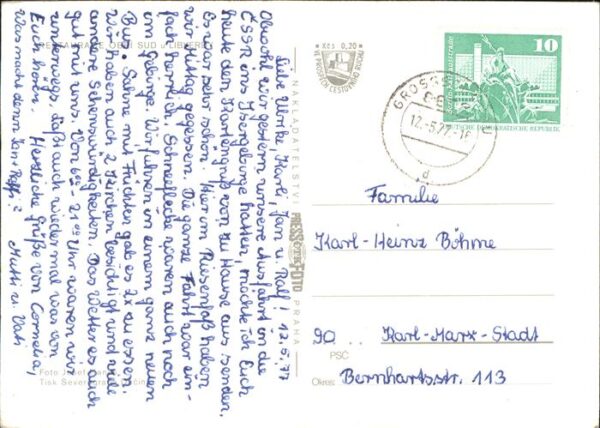 RESTAURACE OBŘÍ SUD u LIBERCE
Liebe Ulrike, Karl, Jan u. Ralf! 12.5.77
Obwohl wir gestern unsere Ausfahrt in die
ČSSR ins Isergebirge hatten, möchte ich Euch
heute den Kartengruß von zu Hause aus senden.
Es war sehr schön. Hier im Riesenfaß haben
wir Mittag gegessen. Die ganze Fahrt war ein-
fach herrlich. Schneeflecke waren auch noch
im Gebirge. Wir fuhren in einem ganz neuen
Bus. Sahne mit Früchten gab es 2x zu essen.
Wir haben auch 2 Kirchen besichtigt und viele
andere Sehenswürdigkeiten. Das Wetter es auch
gut mit uns. Von 6⁰⁰ - 21⁰⁰ Uhr waren wir
unterwegs. Laßt auch wieder mal was von
Euch hören. Herzliche Grüße von Cornelia,
Was macht denn Jan Ralf? Mutti u. Vati.
Foto J
Tisk Severografia
NAKLADATELSTVÍ
PRESSFOTO
PRAHA
Kčs 0,20
VE PROSPĚCH CESTOVNÍHO RUCHU
10
DEUTSCHE DEMOKRATISCHE REPUBLIK
GROSSS
12.-5.77.-16
d
Familie
Karl-Heinz Böhme
90 Karl-Marx-Stadt
PSČ
Okres: Bernhartsstr. 113